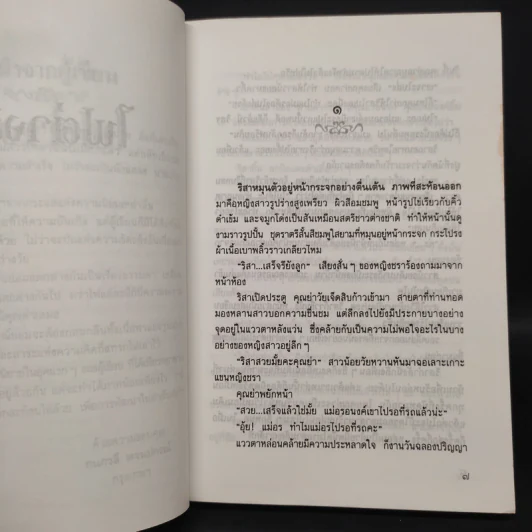 ๑
ริสาหมุนตัวอยู่หน้ากระจกอย่างตื่นเต้น ภาพที่สะท้อนออก
มาคือหญิงสาวรูปร่างสูงเพรียว ผิวสีอมชมพู หน้ารูปไข่เรียวกับคิ้ว
ดำเข้ม และจมูกโด่งเป็นสันเหมือนสตรีชาวต่างชาติ ทำให้หน้านั้นดู
งามราวรูปปั้น ชุดราตรีสั้นสีชมพูใสยามที่หมุนอยู่หน้ากระจก กระโปรง
ผ้าเนื้อเบาพลิ้วราวเกลียวไหม
"ริสา...เสร็จรึยังลูก" เสียงสั่นๆ ของหญิงชราร้องถามมาจาก
หน้าห้อง
ริสาเปิดประตู คุณย่าวัยเจ็ดสิบก้าวเข้ามา สายตาที่ท่านทอด
มองหลานสาวบอกความชื่นชม แต่ลึกลงไปยังมีประกายบางอย่าง
จุดอยู่ในแววตาหลังแว่น ซึ่งคล้ายกับเป็นความไม่พอใจอะไรในบาง
อย่างของหญิงสาวอยู่ลึกๆ
"ริสาสวยมั้ยคะคุณย่า" สาวน้อยวัยหวานหันมาจอเลาะเกาะ
แขนหญิงชรา
คุณย่าพยักหน้า
"สวย...เสร็จแล้วใช่มั้ย แม่อรอนงค์เขาไปรอที่รถแล้วน่ะ"
"อุ้ย! แม่อร ทำไมแม่อรไปรอที่รถคะ"
แววตาหล่อนคล้ายมีความประหลาดใจ ก็งานวันฉลองปริญญา
๗